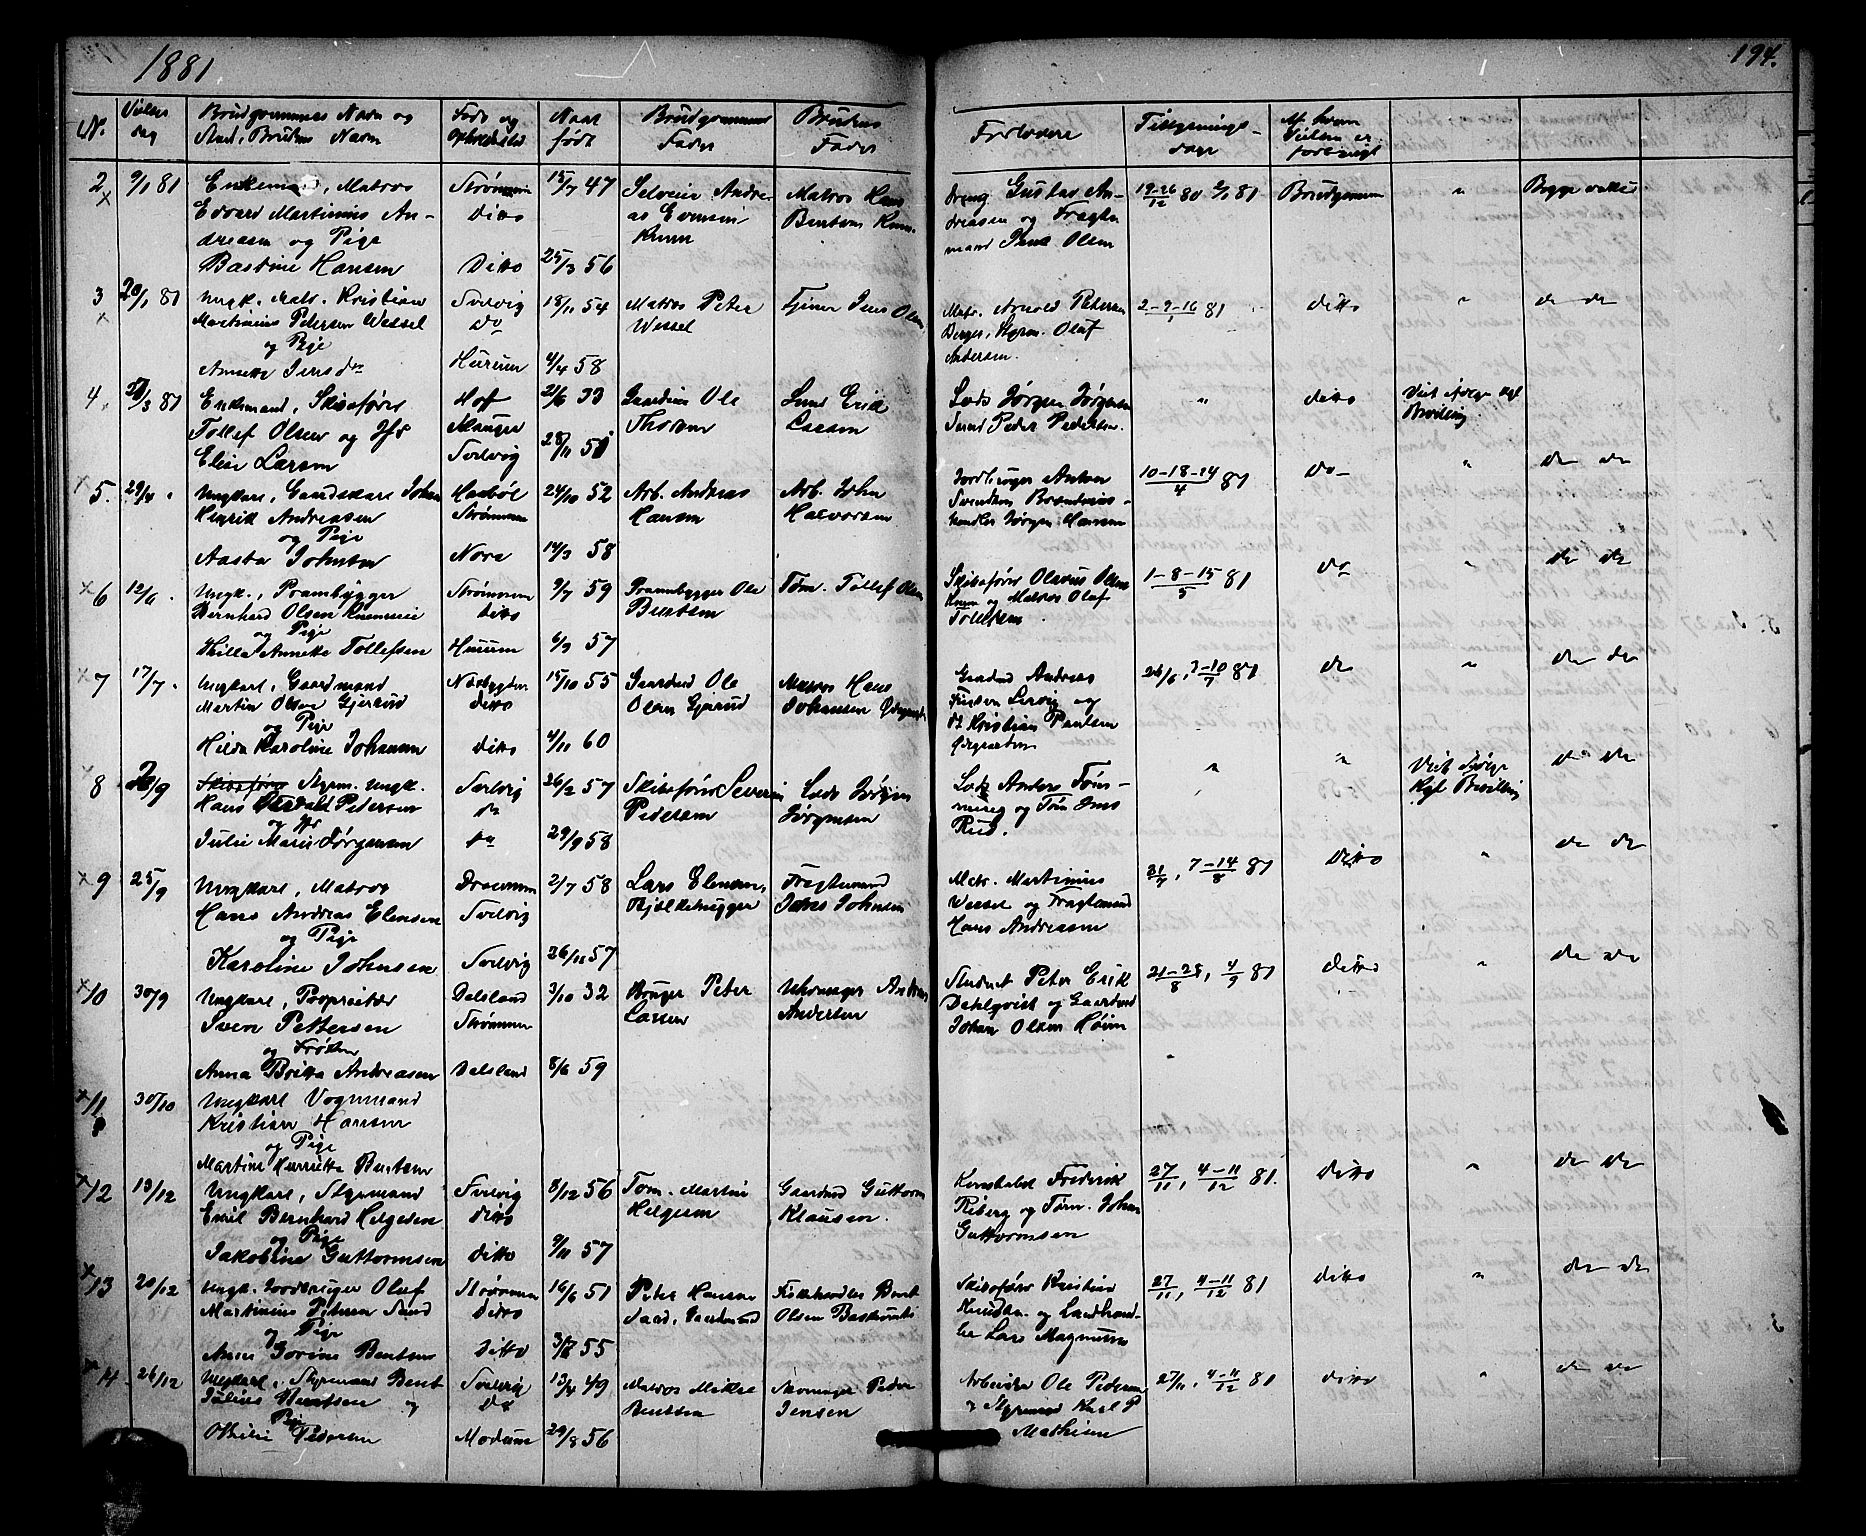 1881
194.
No. Vielses dag Brudgommens Navn og Stand, Brudens Navn Føde og Opholdssted Naar født Brudgommens Fader Brudens Fader Forlovere Tillysnings- dage Af hvem Vielsen er forrettet
2 9/1 81 Enkemand, Matros Strømmen 15/7 47 Selveier Andre- Matros Hans Dreng Gustav An- 19-26/12 80 2/1 81 Brudgommen " Begge vakse
Edvard Martinius An- Ditto as Evensen Bentsen Knem. dreasen og Fragte-
dreasen og Pige Knem mand Jens Olsen
Bastine Hansen Ditto 25/3 56
3 20/1 81 Ungk. Matr. Kristian Svelvig 18/11 54 Matros Peter Tjener Jens Olsen Matr. Arnold Petersen 2-9-16/1 81 ditto " do do
Martinius Petersen Wessel do Wessel Berger, Styrm. Olaf
og Pige Andersen.
Annette Jensdtr Hurum 4/4 58
4 /3 81 Enkemand, Skibsfører Hof 21/6 33 Gaardmd Ole Smed Erik Lods Jørgen Jørgensen " ditto Viet ifølge Kgl
Tollef Olsen og Jfr Skauger Thorsen Larsen Smed Peder Pedersen. Bevilling
Elise Larsen Svelvig 28/11 51 " do do
5. 29/4 Ungkarl, Gaardskarl Johan Hasbøl 24/10 52 Arb. Andreas Arb. John Jordbruger Anton 10-18-24/4 81 do
Henrik Andreasen Strømmen Hansen Halvorsen Svendsen Brændevins-
og Pige handler Jørgen Hansen
Aasta Johnsen Nora 14/3 58
6 12/6 Ungk., Prambygger Strømmen 9/7 59 Prambygger Ole Tøm. Tollef Olsen Skibsfører Olavus Olsen 1-8-15/5 81 do " do do
Bernhard Olsen Knemeie ditto Bentsen Knem og Matros Olaf
og Pige Tollefsen.
Thilla Annette Tollefsen Hurum 6/3 57
7 17/7 Ungkarl, Gaardmand Næsbygden 15/10 55 Gaardmd Ole Matros Hans Gaardmd Andreas 26/6, 3-10/7 81 do " do do
Martin Olsen Gjerud ditto Olsen Gjerud Johansen Ødegaarden Jensen Lervig og
og Pige do Kristian Paulsen
Hilda Karoline Johansen ditto 4/11 60 Ødegaarden
8 /9 Skibsfører Styrm. Ungk. Svelvig 26/2 57 Skibsfører Severin Lods Jørgen Lods Anders Tøns- " " Viet ifølge do do
Hans Petersen do Pedersen Jørgensen og Tøm Jens Kgl Bevilling
og Jfr Rud.
Julie Marie Jørgensen do 29/9 58
9 25/9 Ungkarl, Matros Drammen 2/7 58 Lars Elensen, Fragtemand Matr. Martinius 31/7, 7-14/8 81 Ditto " do do
Hans Andreas Elensen Svelvig Bjelkehugger Jahns Johnsen Wessel og Fragtemand
og Pige Hans Andreasen
Karoline Johnsen Svelvig 26/11 57
10 30/9 Ungkarl, Proprietær Dalsland 3/10 32 Bruger Peter Andreas Student Peter Erik 21-28/8, 4/9 81 ditto " do do
Sven Pettersen Strømmen Larsen Andersen Dahlqvist og Gaardmd
og Frøken Johan Olsen Høien
Anna Britta Andreasen Dalsland 8/6 59 "
11 30/10 Ungkarl Vognmand
Kristian Hansen
og Pige
Martine Henriette Bentsen
12 13/12 Ungkarl, Styrmand Svelvig 8/12 56 Tøm. Martin Gaardmd Guttorm Konstabel Frederik 27/11, 4-11/12 81. ditto " do do
Emil Bernhard Helgesen ditto Helgesen Klausen. Riberg og Tøm. Johan
og Pige Guttormsen
Jakobine Guttormsen ditto 9/11 57
13 20/12 Ungk. Jordbruger Olaf Strømmen 16/6 51 Peter Hansen Fiskehandler Bent Skibsfører Kristian 27/11, 4-11/12 81 ditto " do do
Martinius Petersen Sand Ditto Sand, Gaardmand Olsen Knudsen og Landhand-
og Pige ler Lars Magnussen
Anne Gorine Bentsen Ditto 55
14 26/12 Ungkarl, Styrmand Bent Svelvig 13/4 49 Matros Mikkel Peder Arbeider Ole Pedersen 27/11, 4-11/12 81 ditto " do do
Julius Bentsen og Do Bentsen Jensen og Styrmand Karl P
Pige Mathisen
Othilie Pedersen Modum 29/8 56